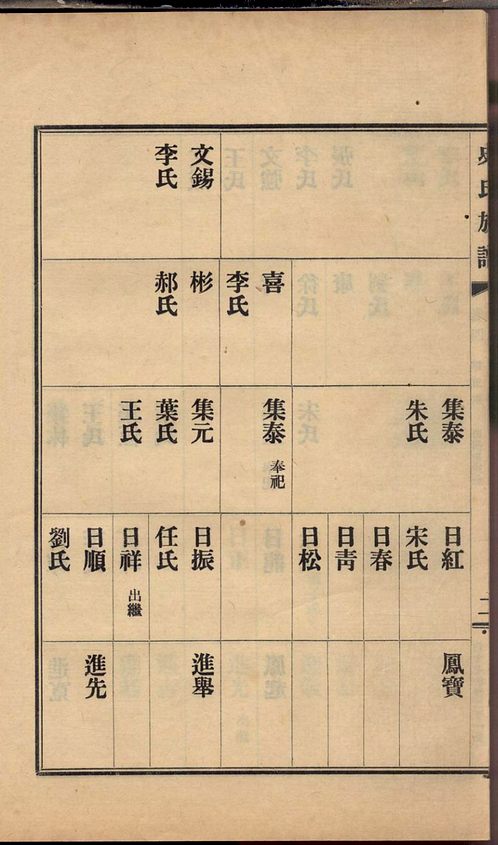 氏族譜
二
文錫
李氏
喜
李氏
彬
郝氏
集泰
朱氏
集泰 奉祀
集元
葉氏
王氏
日紅
宋氏
日春
日靑
日松
日振
任氏
日祥 出繼
日順
劉氏
鳳寶
進舉
進先